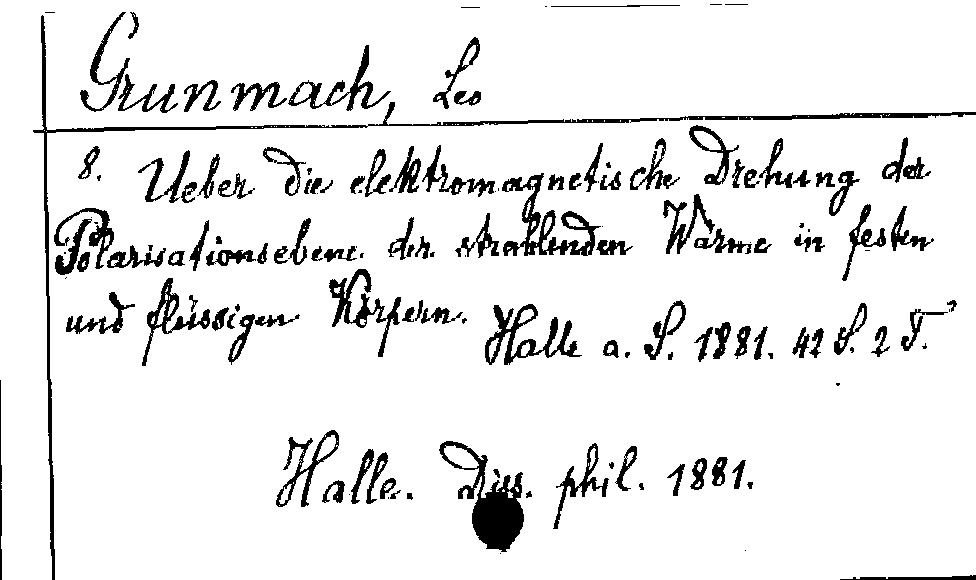 Grunmach, Leo
8. Ueber die elektromagnetische Drehung der
Polarisationsebene der strahlenden Wärme in festen
und flüssigen Körpern.
Halle a. S. 1881. 42 S. 2 T.
Halle. Diss. phil. 1881.